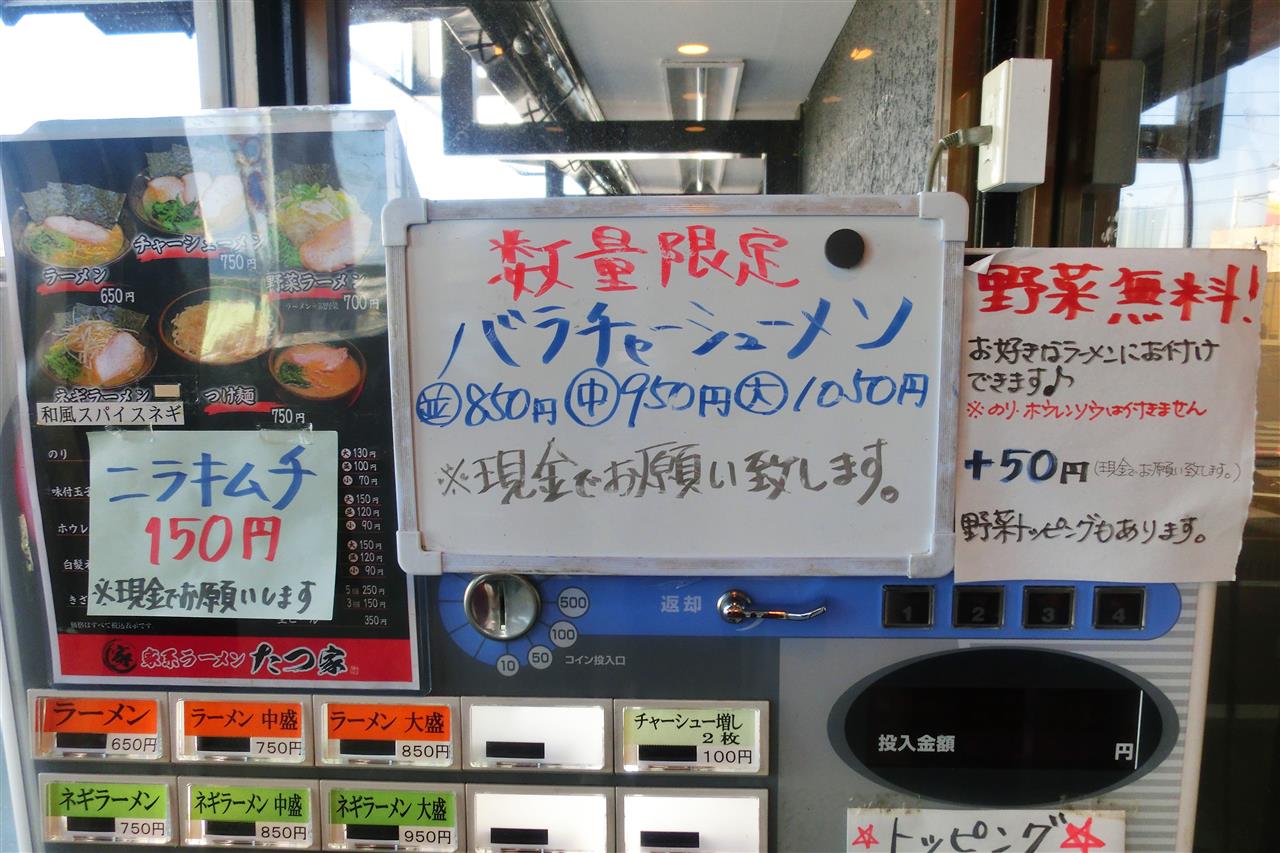 チャーシューメン
750円
ラーメン
650円
野菜ラーメン
700円
ネギラーメン
和風スパイスネギ
つけ麺
750円
のり
大 130円
並 100円
小 70円
味付玉子
大 150円
並 120円
小 90円
ホウレ
大 150円
並 120円
小 90円
白髪ネ
きざ
5個 250円
3個 150円
生ビール
350円
価格はすべて税込表示です。
家系ラーメン たつ家
ニラキムチ
150円
※現金でお願いします
数量限定
バラチャーシューメン
並850円 中950円 大1050円
※現金でお願い致します。
野菜無料!
お好きなラーメンにお付け
できます♪
※のり・ホウレンソウは付きません
+50円(現金でお願い致します。)
野菜トッピングもあります。
500
100
50
10
コイン投入口
返却
1 2 3 4
投入金額
円
ラーメン
650円
ラーメン 中盛
750円
ラーメン 大盛
850円
チャーシュー増し
2枚
100円
ネギラーメン
750円
ネギラーメン 中盛
850円
ネギラーメン 大盛
950円
☆トッピング☆